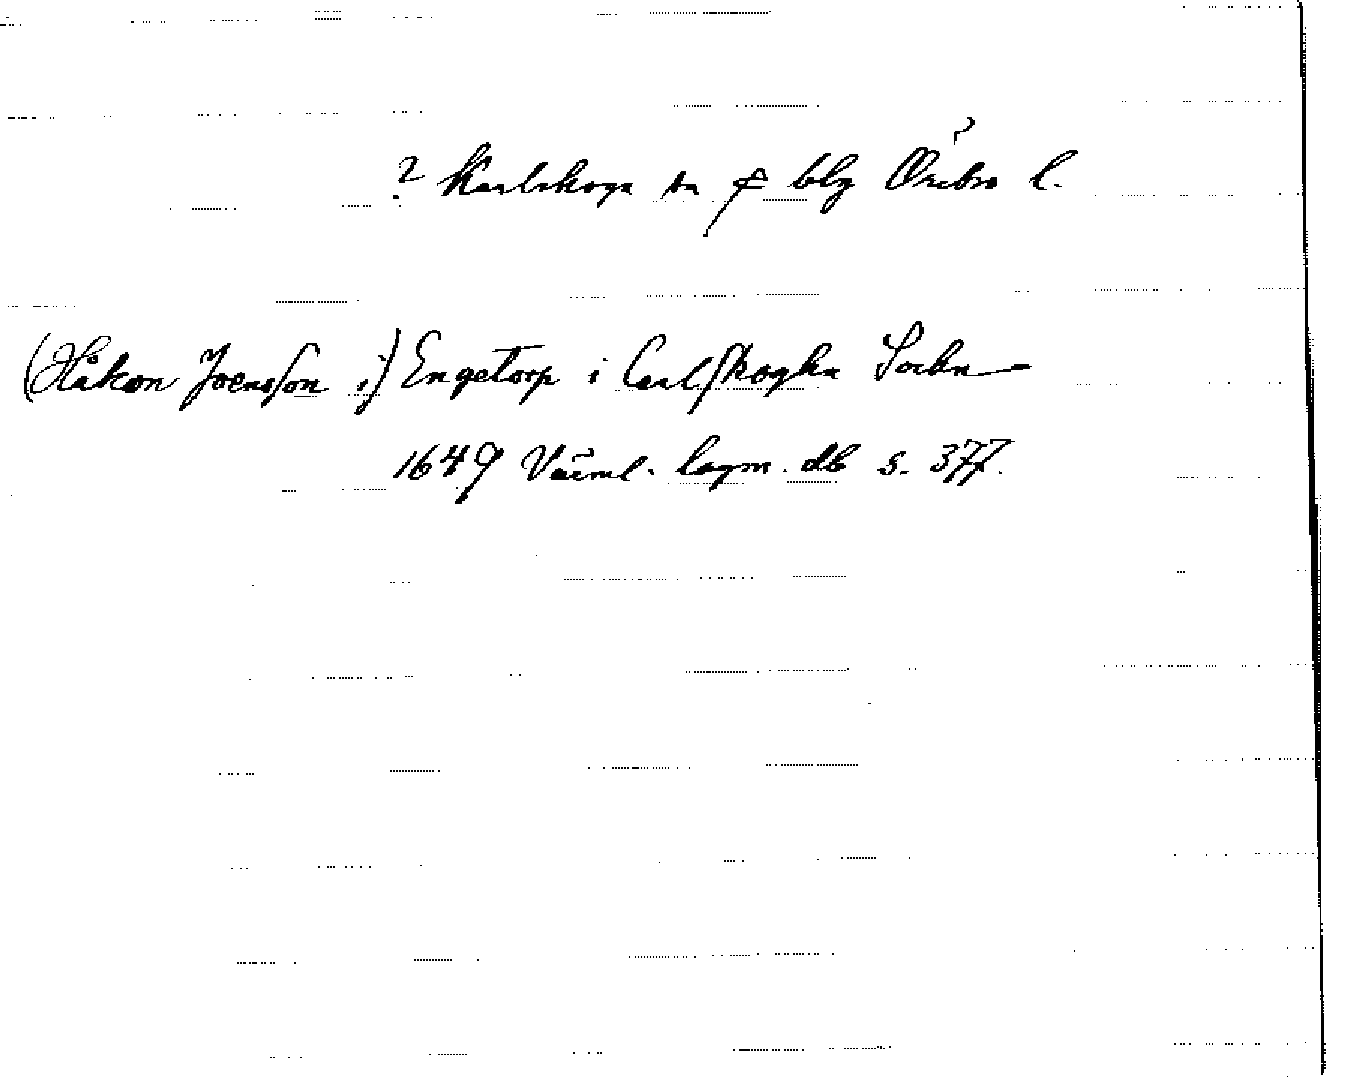 ? Karlskoga sn f blg Örebro l.
(Håkon Joensson i) Engetorp i Carlskogha Sockn
1649 Värml. lagm. db s. 377.